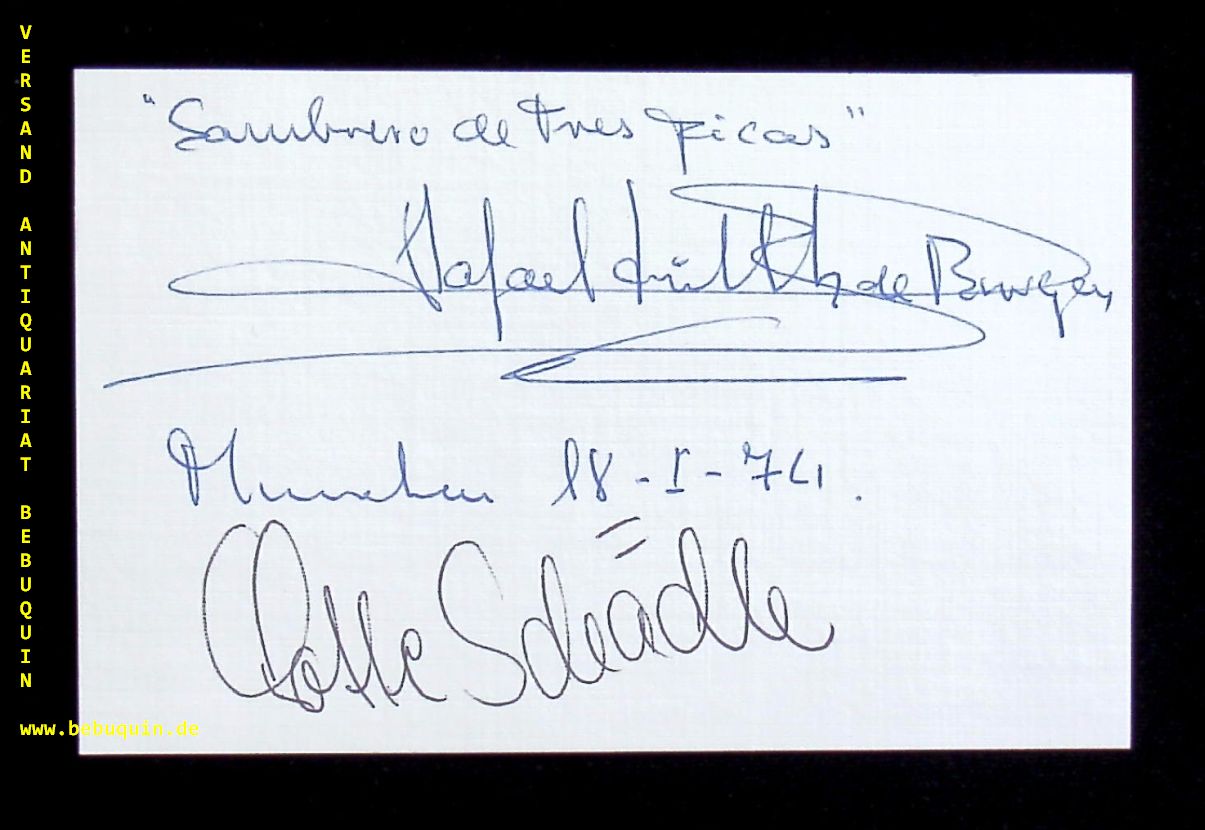 "Sombrero de tres picos"
Rafael Frühbeck de Burgos
München 18-I-74.
Lotte Schädle
VERSAND ANTIQUARIAT BEBUQUIN
www.bebuquin.de